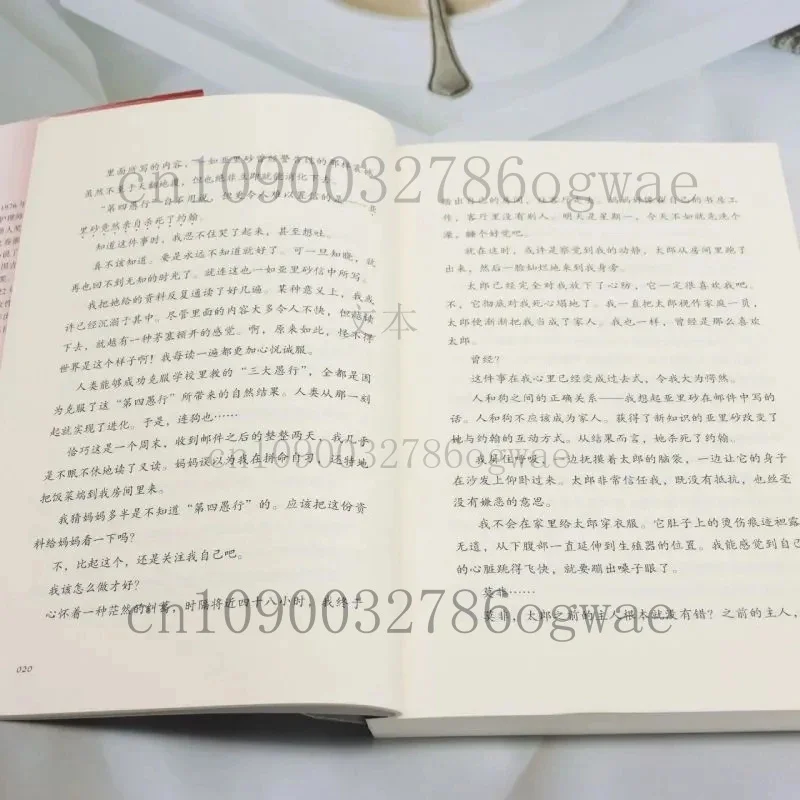 里面所写的内容，一如亚里砂曾经警告过的那样震撼
虽然不至于天翻地覆，但也绝非立即就能消化下去。
“第四愚行”自不用说，更令人难以置信的是——亚
里砂竟然亲自杀死了约翰。
知道这件事时，我忍不住哭了起来，甚至想吐。
真不该知道。要是永远不知道就好了。可一旦知晓，就
再也回不到无知的时光了。就连这也一如亚里砂信中所写。
我把她给的资料反复通读了好几遍。某种意义上，我或
许已经沉溺于其中。尽管里面的内容大多令人不快，但越读
下去，就越有一种茅塞顿开的感觉。啊，原来如此，怪不得
世界是这个样子啊！我每读一遍都更加心悦诚服。
人类能够成功克服学校里教的“三大愚行”，全都是因
为克服了这“第四愚行”所带来的自然结果。人类从那一刻
起就实现了进化。于是，连狗也……
恰巧这是一个周末，收到邮件之后的整整两天，我几乎
是不眠不休地读了又读。妈妈误以为我在拼命自习，还特地
把饭菜端到我房间里来。
我猜妈妈多半是不知道“第四愚行”的。应该把这份资
料给妈妈看一下吗？
不，比起这个，还是关注我自己吧。
我该怎么做才好？
心怀着一种茫然的纠葛，时隔将近四十八小时，我终于
020
踏出自己的房间，往客厅走。妈妈好像在自己的书房工
作，客厅里没有别人。明天是星期一，今天不如就先洗个
澡，睡个好觉吧。
就在这时，或许是察觉到我的动静，太郎从房间里跑了
出来，然后一脸灿烂地来到我身旁。
太郎已经完全对我放下了心防，它一定很喜欢我吧。
不，它彻底对我死心塌地了。我一直把太郎视作家庭一员，
太郎便渐渐把我当成了家人。我也一样，曾经是那么喜欢
太郎。
曾经？
这件事在我心里已经变成过去式，令我大为愕然。
人和狗之间的正确关系——我想起亚里砂在邮件中写的
话。人和狗不应该成为家人。获得了新知识的亚里砂改变了
她与约翰的互动方式。从结果而言，她杀死了约翰。
我屏住呼吸，一边抚摸着太郎的脑袋，一边让它的身子
在沙发上仰卧过来。太郎非常信任我，既没有抵抗，也丝毫
没有嫌恶的意思。
我不会在家里给太郎穿衣服。它肚子上的烫伤痕迹袒露
无遗，从下腹部一直延伸到生殖器的位置。我能感觉到自己
的心脏跳得飞快，就要蹦出嗓子眼了。
莫非……
莫非，太郎之前的主人根本就没有错？之前的主人，
cn1090032786ogwae
文本
cn1090032786ogwae
cn1090032786ogwae